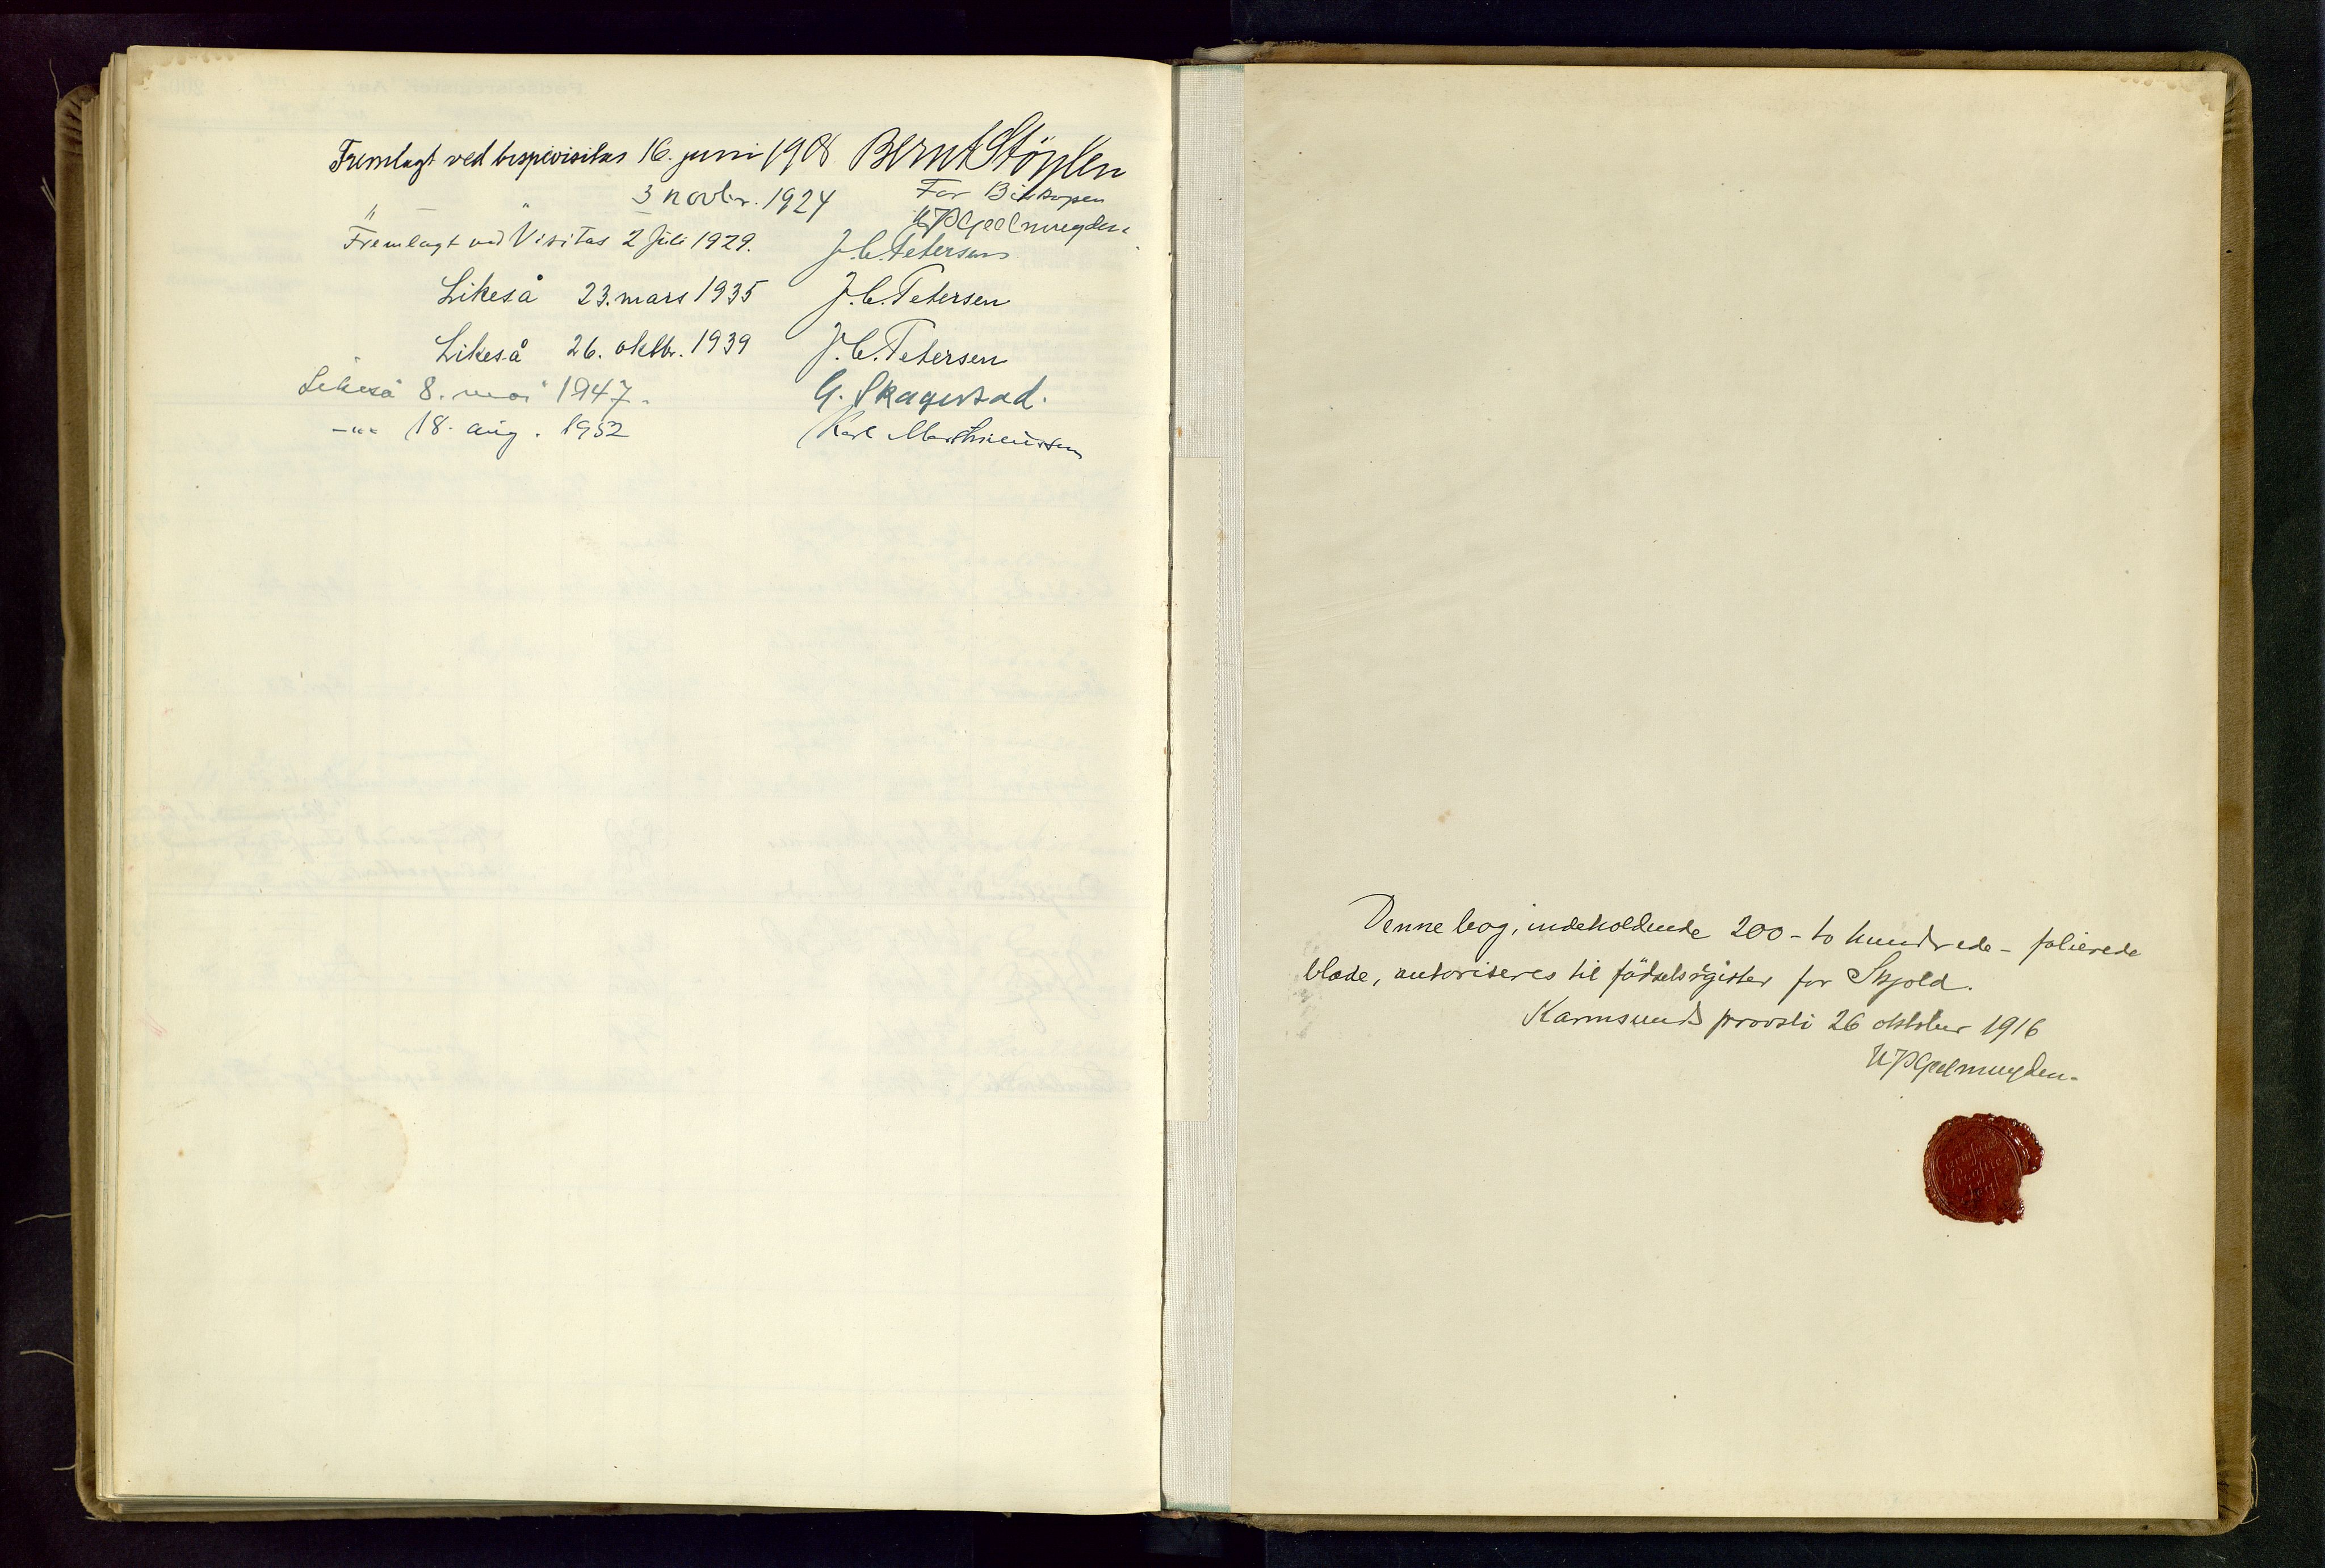 Fremlagt ved bispevisitas 16. juni 1918 Bernt Støylen
" — " 3 novbr. 1924 For Biskopen
Fremlagt ved Visitas 2 Juli 1929. J.C. Petersen
Likeså 23. mars 1935 J.C. Petersen
Likeså 26. oktbr. 1939 J.C. Petersen
Likeså 8. mai 1947. G. Skagestad.
-"- 18. aug. 1952 Karl Marthinussen
Denne bog, indeholdende 200 - to hundrede - folierede
blade, autoriseres til fødselsregister for Skjold.
Karmsunds provsti 26 oktober 1916